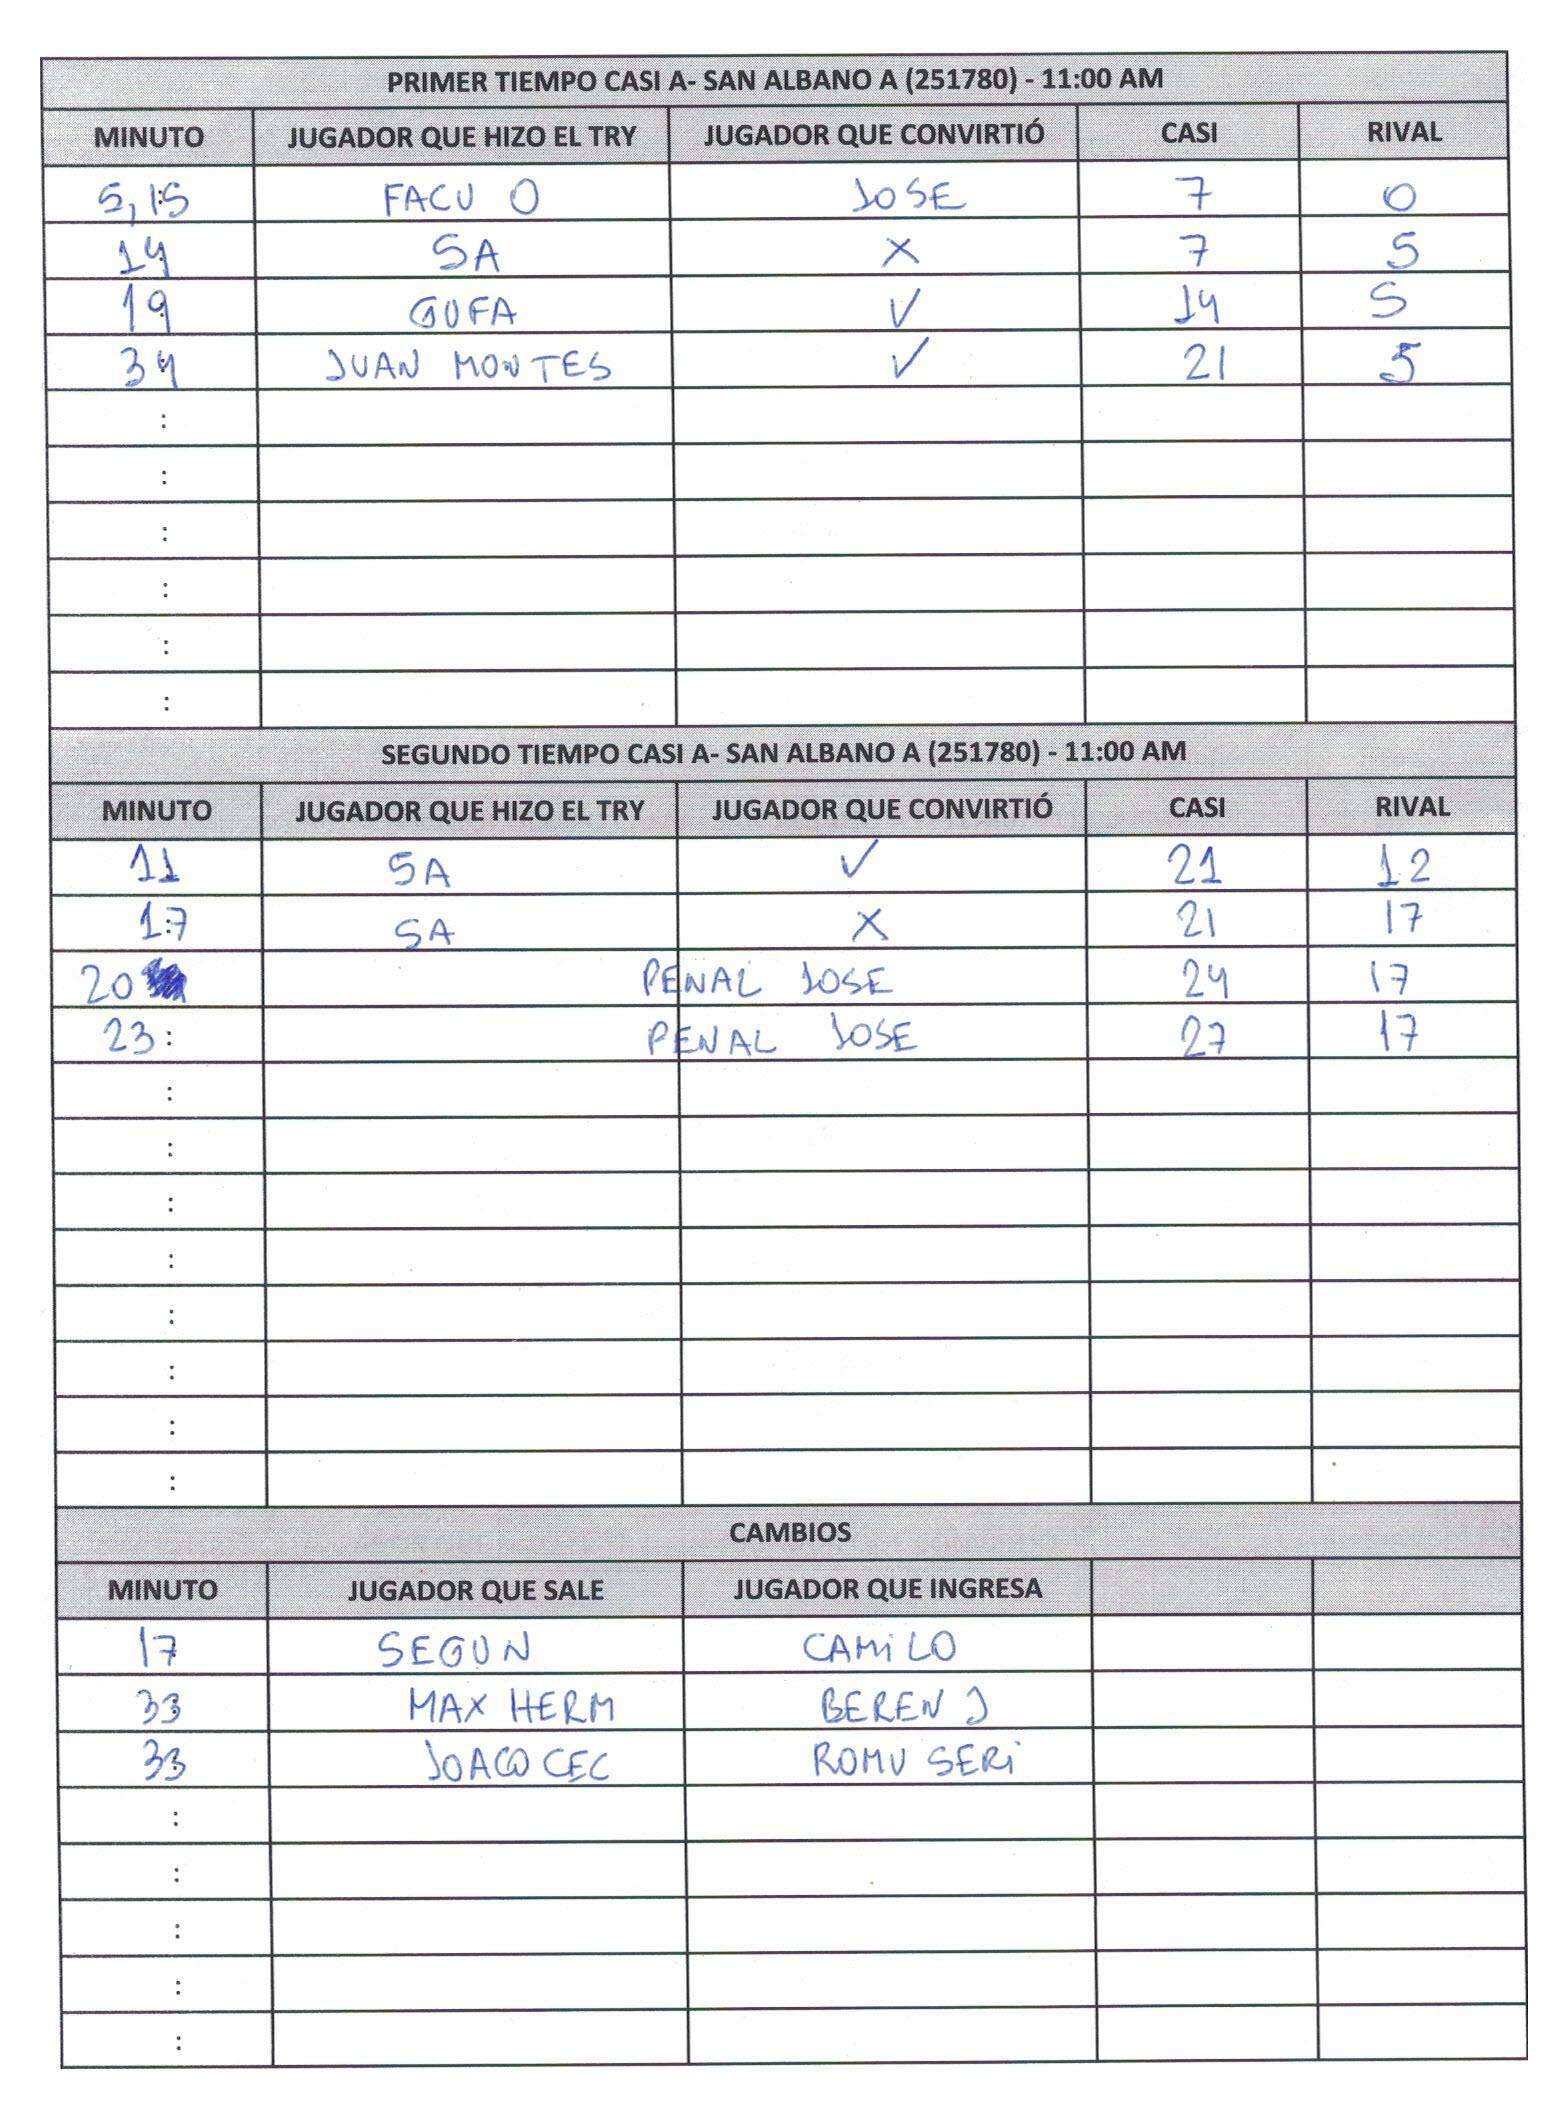 PRIMER TIEMPO CASI A- SAN ALBANO A (251780) - 11:00 AM
MINUTO JUGADOR QUE HIZO EL TRY JUGADOR QUE CONVIRTIÓ CASI RIVAL
5,15 FACU O JOSE 7 0
14 SA X 7 5
19 GUFA ✓ 14 5
34 JUAN MONTES ✓ 21 5
:
:
:
:
:
:
SEGUNDO TIEMPO CASI A- SAN ALBANO A (251780) - 11:00 AM
MINUTO JUGADOR QUE HIZO EL TRY JUGADOR QUE CONVIRTIÓ CASI RIVAL
11 SA ✓ 21 12
17 SA X 21 17
20 PENAL JOSE 24 17
23: PENAL JOSE 27 17
:
:
:
:
:
:
:
:
CAMBIOS
MINUTO JUGADOR QUE SALE JUGADOR QUE INGRESA
17 SEGUN CAMILO
33 MAX HERM BEREN J
33 JOACO CEC ROMU SERI
:
:
:
:
: